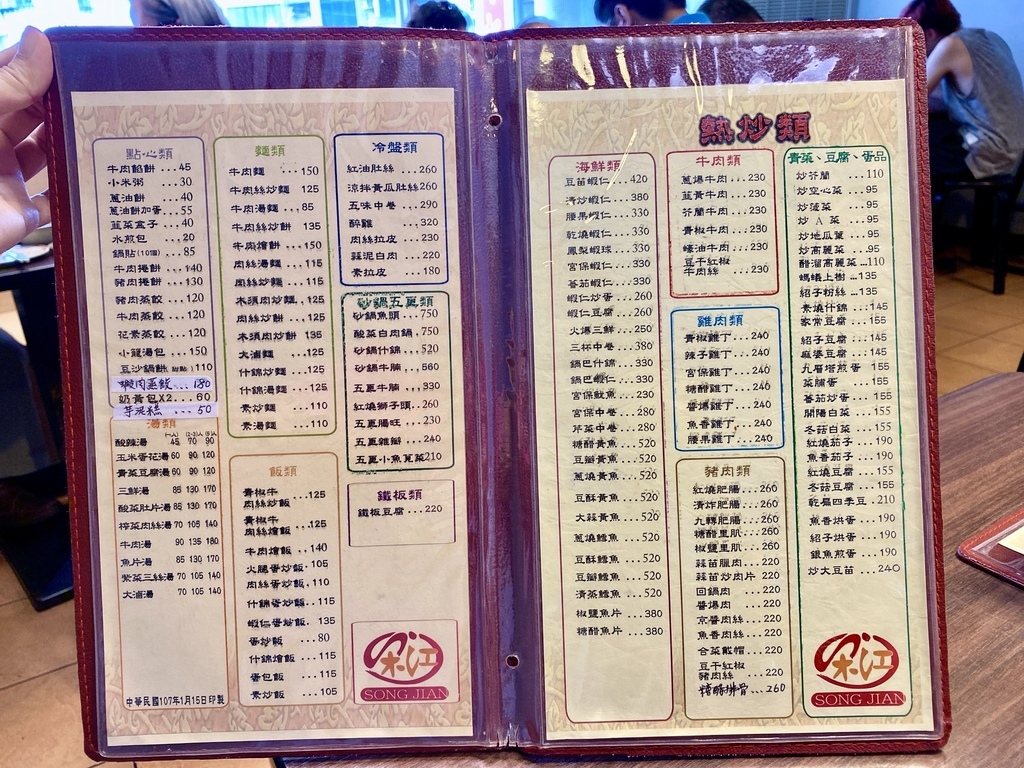 點心類
牛肉餡餅 ...45
小米粥 ...30
蔥油餅 ...40
蔥油餅加蛋...55
韮菜盒子 ...40
水煎包 ...20
鍋貼(10個) ...85
牛肉捲餅 ...140
豬肉捲餅 ...130
豬肉蒸餃 ...120
牛肉蒸餃 ...120
花素蒸餃 ...120
小籠湯包 ...150
豆沙鍋餅(甜點)110
蝦肉蒸餃...180
奶黃包X2...60
芋泥糕 ...50
湯類
(一人) (2-3人) (5人)
酸辣湯 45 70 90
玉米蛋花湯 60 90 120
青菜豆腐湯 60 90 120
三鮮湯 85 130 170
酸菜肚片湯 85 130 170
榨菜肉絲湯 70 105 140
牛肉湯 90 135 180
魚片湯 85 130 170
紫菜三絲湯 70 105 140
大滷湯 70 105 140
中華民國107年1月15日印製
麵類
牛肉麵 ...150
牛肉絲炒麵 125
牛肉湯麵 ...85
牛肉絲炒餅 135
牛肉燴餅 ...150
肉絲湯麵 ...115
肉絲炒麵 ...115
木須肉炒麵...125
肉絲炒餅 ...125
木須肉炒餅 135
大滷麵 ...125
什錦炒麵 ...125
什錦湯麵 ...125
素炒麵 ...110
素湯麵 ...110
飯類
青椒牛
肉絲炒飯 ...125
青椒牛
肉絲燴飯 ...125
牛肉燴飯 ...140
火腿蛋炒飯...105
肉絲蛋炒飯...110
什錦蛋炒飯...115
蝦仁蛋炒飯...135
蛋炒飯 ...80
什錦燴飯 ...115
蛋包飯 ...115
素炒飯 ...105
冷盤類
紅油肚絲 ...260
涼拌黃瓜肚絲260
五味中卷 ...290
醉雞 ...320
肉絲拉皮 ...230
蒜泥白肉 ...220
素拉皮 ...180
砂鍋五更類
砂鍋魚頭 ...750
酸菜白肉鍋...750
砂鍋什錦 ...520
砂鍋牛腩 ...560
五更牛腩 ...330
紅燒獅子頭...260
五更腸旺 ...230
五更雜臟 ...240
五更小魚莧菜210
鐵板類
鐵板豆腐 ...220
松江
SONG JIAN
熱炒類
海鮮類
豆苗蝦仁 ...420
清炒蝦仁 ...380
腰果蝦仁 ...330
乾燒蝦仁 ...330
鳳梨蝦球 ...330
宮保蝦仁 ...330
蕃茄蝦仁 ...330
蝦仁炒蛋 ...260
蝦仁豆腐 ...260
火爆三鮮 ...250
三杯中卷 ...380
鍋巴什錦 ...330
鍋巴蝦仁 ...330
宮保魷魚 ...230
宮保中卷 ...280
芹菜中卷 ...280
糖醋黃魚 ...520
豆瓣黃魚 ...520
豆酥黃魚 ...520
大蒜黃魚 ...520
蔥燒鱈魚 ...520
豆酥鱈魚 ...520
豆瓣鱈魚 ...520
清蒸鱈魚 ...520
椒鹽魚片 ...380
糖醋魚片 ...380
牛肉類
蔥爆牛肉...230
韮黃牛肉...230
芥蘭牛肉...230
青椒牛肉...230
蠔油牛肉...230
豆干紅椒
牛肉絲 ...230
雞肉類
青椒雞丁...240
辣子雞丁...240
宮保雞丁...240
糖醋雞丁...240
醬爆雞丁...240
魚香雞丁...240
腰果雞丁...240
豬肉類
紅燒肥腸...260
清炸肥腸...260
九轉肥腸...260
糖醋里肌...260
椒鹽里肌...260
蒜苗臘肉...220
蒜苗炒肉片 220
回鍋肉 ...220
醬爆肉 ...220
京醬肉絲...220
魚香肉絲...220
合菜戴帽...220
豆干紅椒
豬肉絲 ...220
糖醋排骨...260
青菜、豆腐、蛋品
炒芥蘭 ...110
炒空心菜 ...95
炒菠菜 ...95
炒 A 菜 ...95
炒地瓜葉 ...95
炒高麗菜 ...95
醋溜高麗菜...110
螞蟻上樹 ...135
紹子粉絲 ...135
素燒什錦...145
家常豆腐 ...155
紹子豆腐 ...145
麻婆豆腐 ...145
九層塔煎蛋 155
菜脯蛋 ...155
蕃茄炒蛋 ...155
開陽白菜 ...155
冬菇白菜 ...155
紅燒茄子 ...190
魚香茄子 ...190
紅燒豆腐 ...155
冬菇豆腐 ...155
乾扁四季豆...210
魚香烘蛋 ...190
紹子烘蛋 ...190
銀魚煎蛋 ...190
炒大豆苗 ...240
松江
SONG JIAN